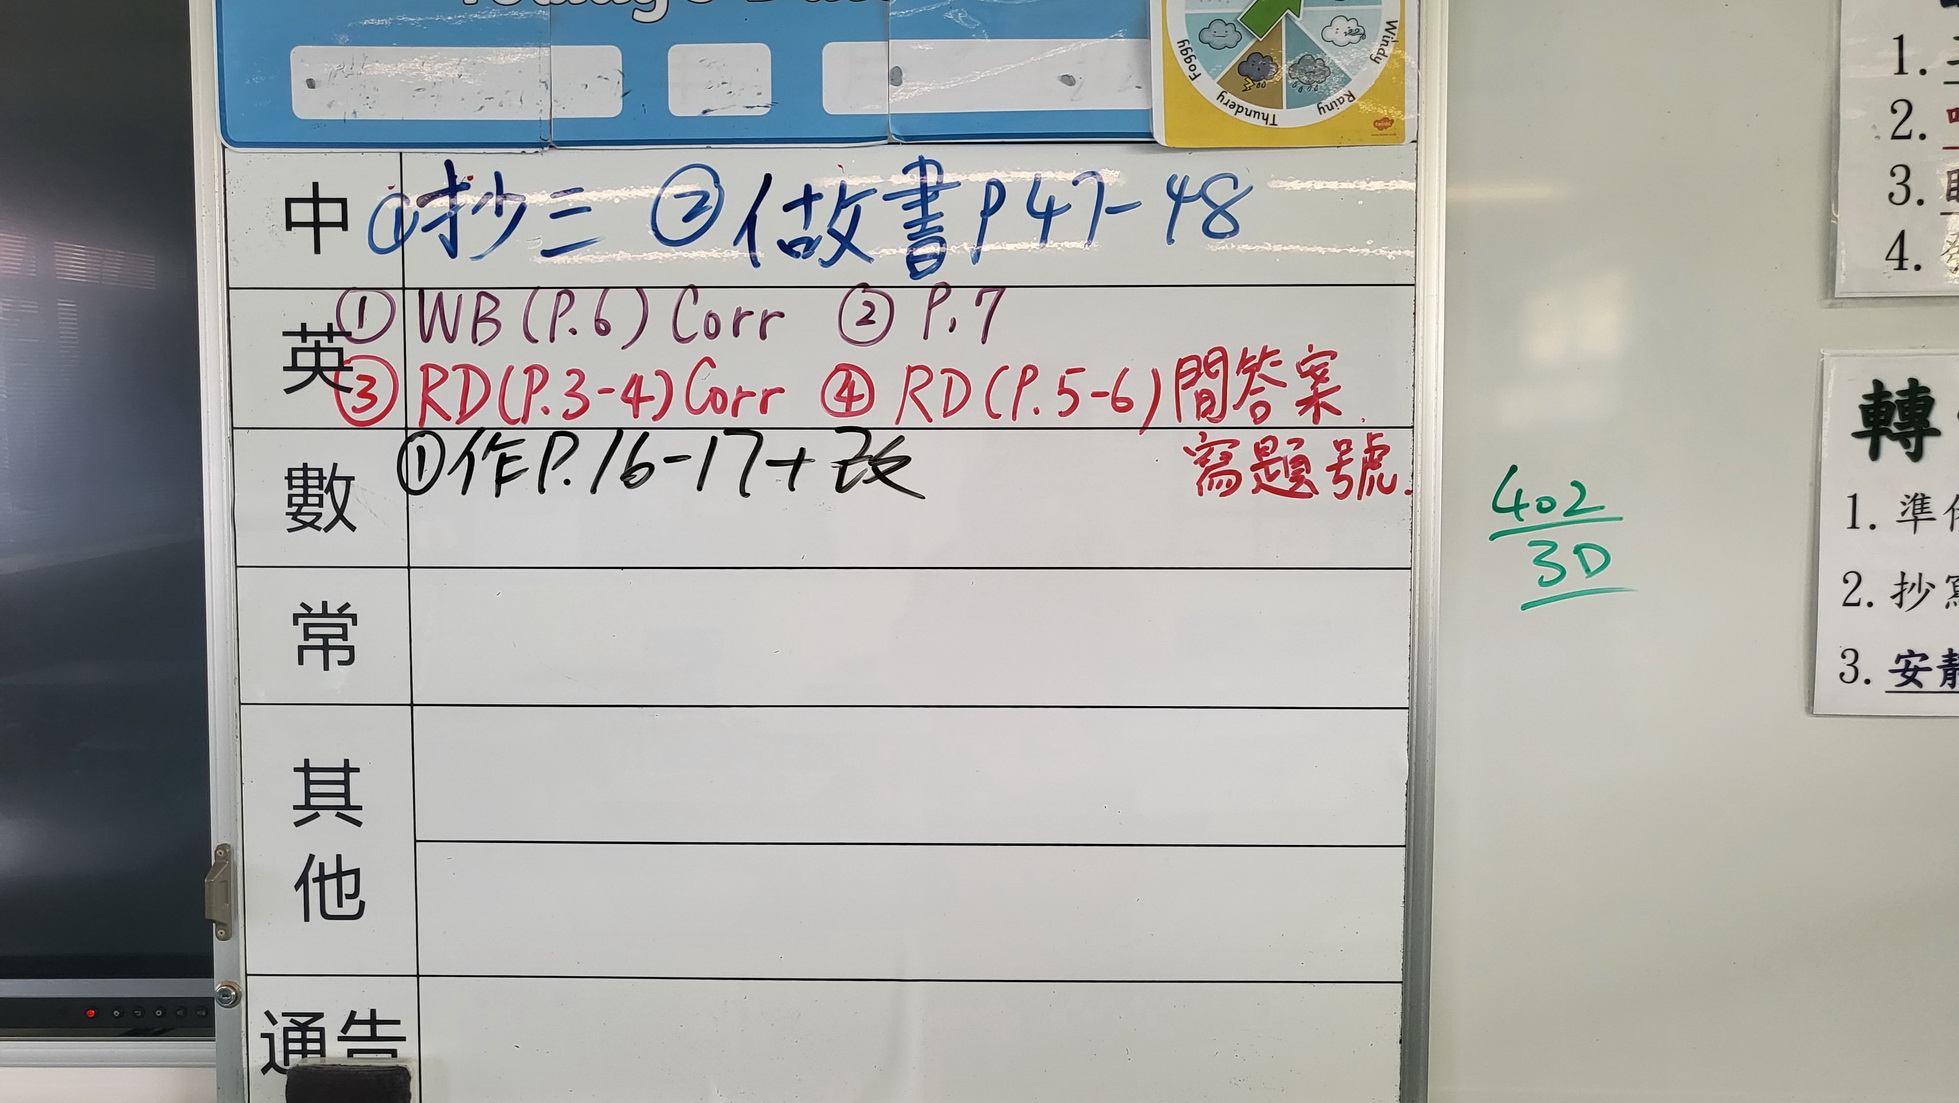 Foggy
Thundery
Rainy
Windy
中 ①抄三 ②做書P47-48
英 ① WB (P.6) Corr ② P.7
③ RD(P.3-4)Corr ④ RD(P.5-6)間答案
寫題號.
數 ①作P.16-17+改
常
其他
通告
402
3D
1.
2.
3.
4.
轉
1. 準
2. 抄寫
3. 安靜